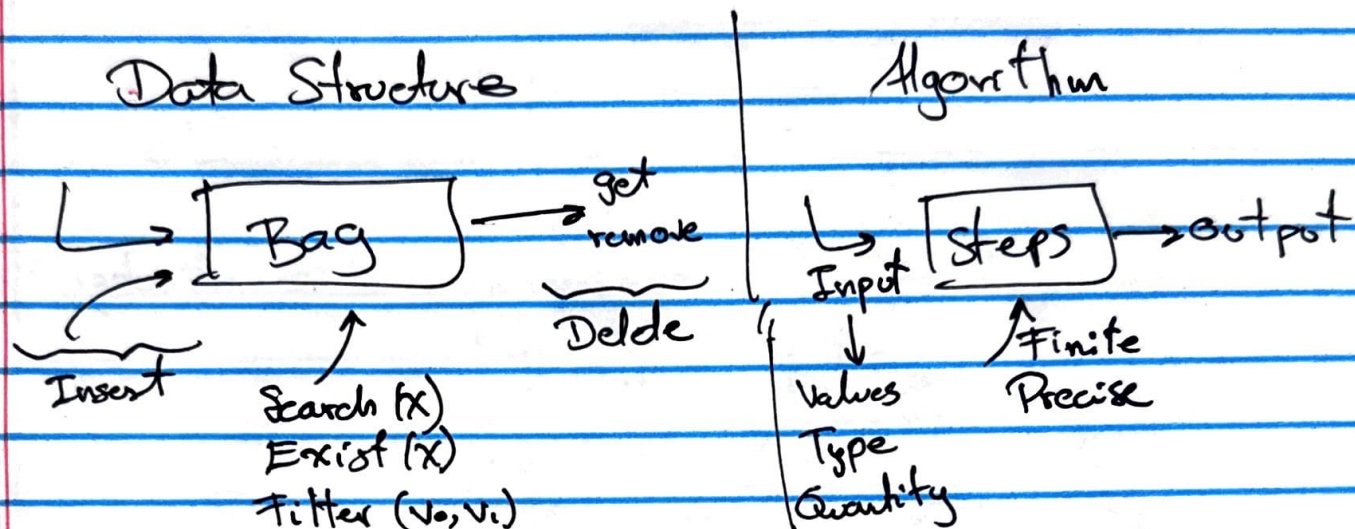 Data Structure
Bag
get
remove
Delde
Insert
Search (x)
Exist (x)
Filter (v₀, v₁)
Algorithm
Input
Steps
output
Values
Type
Quantity
Finite
Precise